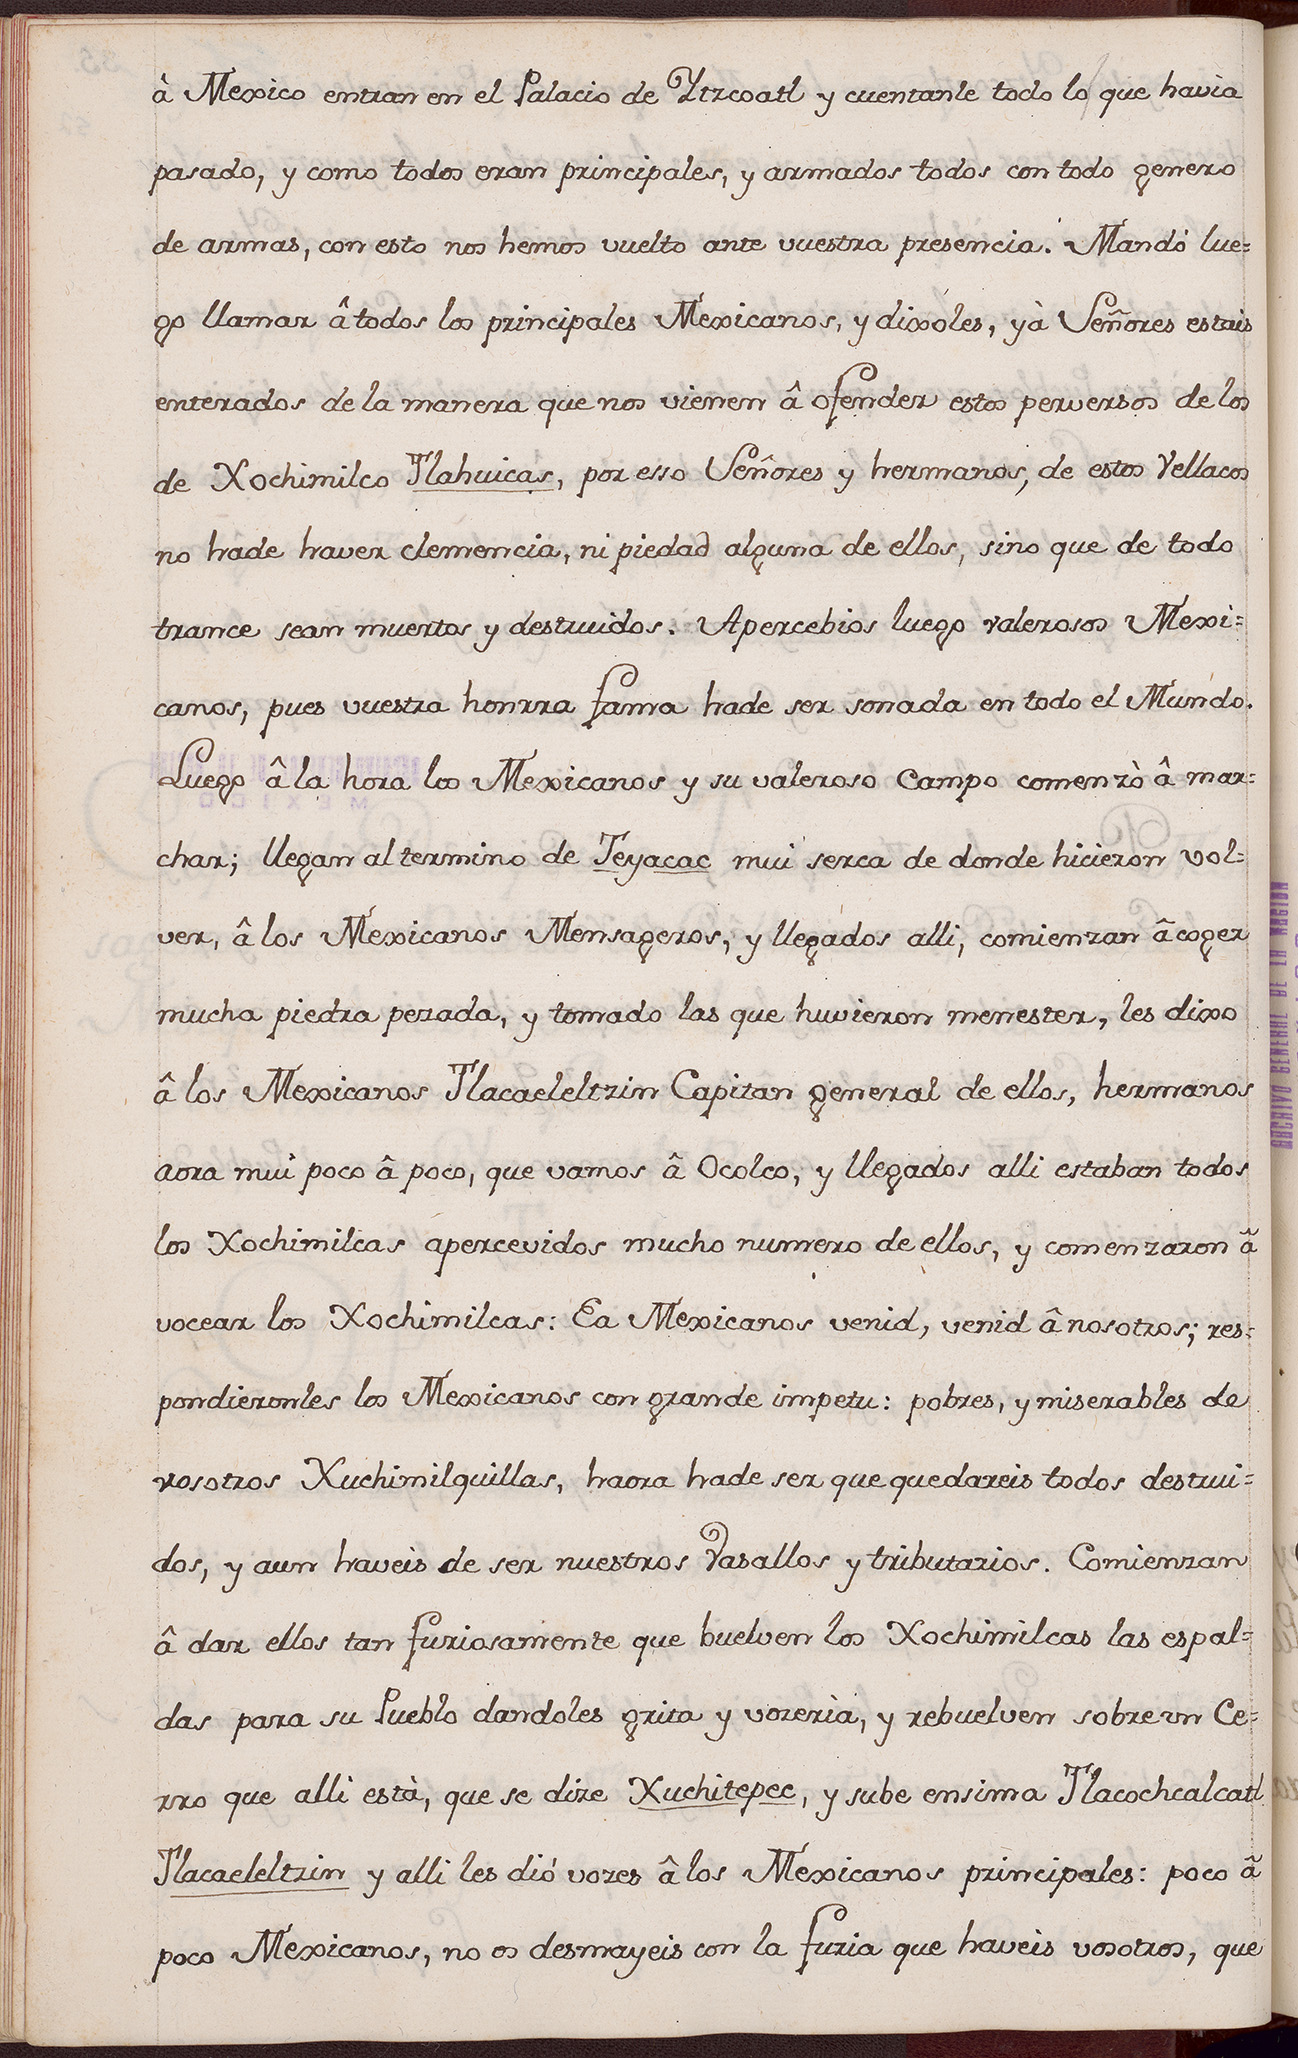 à Mexico entran en el Palacio de Ytzcoatl y cuentanle todo lo que havia
pasado, y como todos eran principales, y armados todos con todo genero
de armas, con esto nos hemos vuelto ante vuestra presencia. Mandó lue=
go llamar â todos los principales Mexicanos, y dixoles, yà Señores estais
enterados de la manera que nos vienen â ofender estos perversos de los
de Xochimilco Tlahuicas, por esso Señores y hermanos, de estos Vellacos
no hade haver clemencia, ni piedad alguna de ellos, sino que de todo
trance sean muertos y destruidos. Apercebios luego valerosos Mexi=
canos, pues vuestra honrra fama hade ser sonada en todo el Mundo.
Luego â la hora los Mexicanos y su valeroso Campo comenzò â mar=
char; llegan al termino de Teyacac mui serca de donde hicieron vol=
ver, â los Mexicanos Mensageros, y llegados alli, comienzan â coger
mucha piedra pezada, y tomado las que huvieron menester, les dixo
â los Mexicanos Tlacaeleltzin Capitan general de ellos, hermanos
aora mui poco â poco, que vamos â Ocolco, y llegados alli estaban todos
los Xochimilcas apercevidos mucho numero de ellos, y comenzaron â
vocear los Xochimilcas: Ea Mexicanos venid, venid â nosotros; res=
pondieronles los Mexicanos con grande impetu: pobres, y miserables de
vosotros Xuchimilquillas, haora hade ser que quedareis todos destrui=
dos, y aun haveis de ser nuestros Vasallos y tributarios. Comienzan
â dar ellos tan furiosamente que buelven los Xochimilcas las espal=
das para su Pueblo dandoles grita y vozeria, y rebuelven sobre un Ce=
rro que alli està, que se dize Xuchitepec, y sube ensima Tlacochcalcatl
Tlacaeleltzin y alli les dió vozes â los Mexicanos principales: poco â
poco Mexicanos, no os desmayeis con la furia que haveis vosotros, que
ARCHIVO GENERAL DE LA NACION